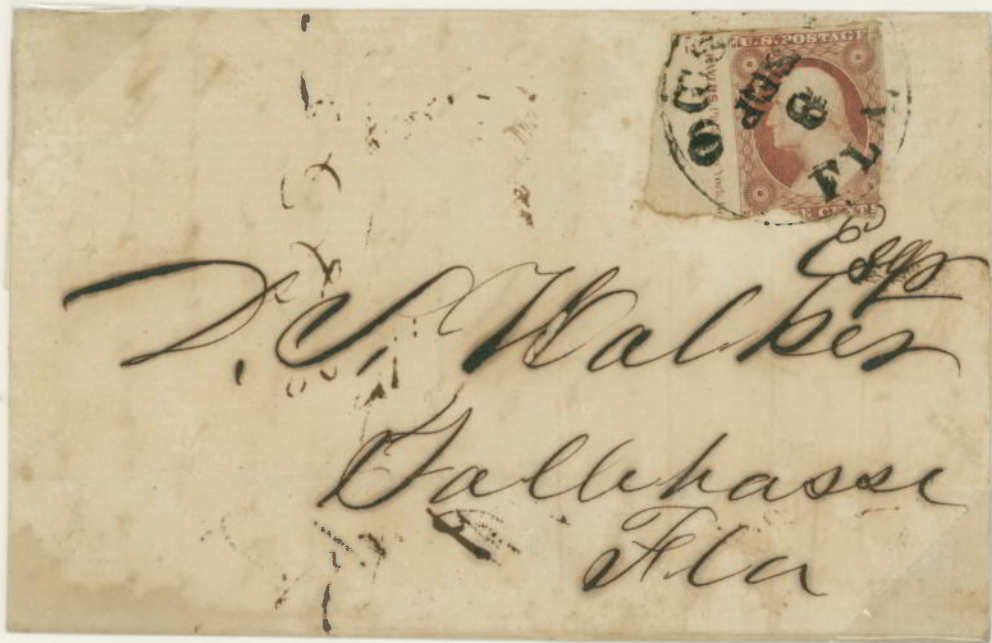 U.S. POSTAGE
SEP
6
FLA
Esqr
D. S. Walker
Tallahasse
Fla